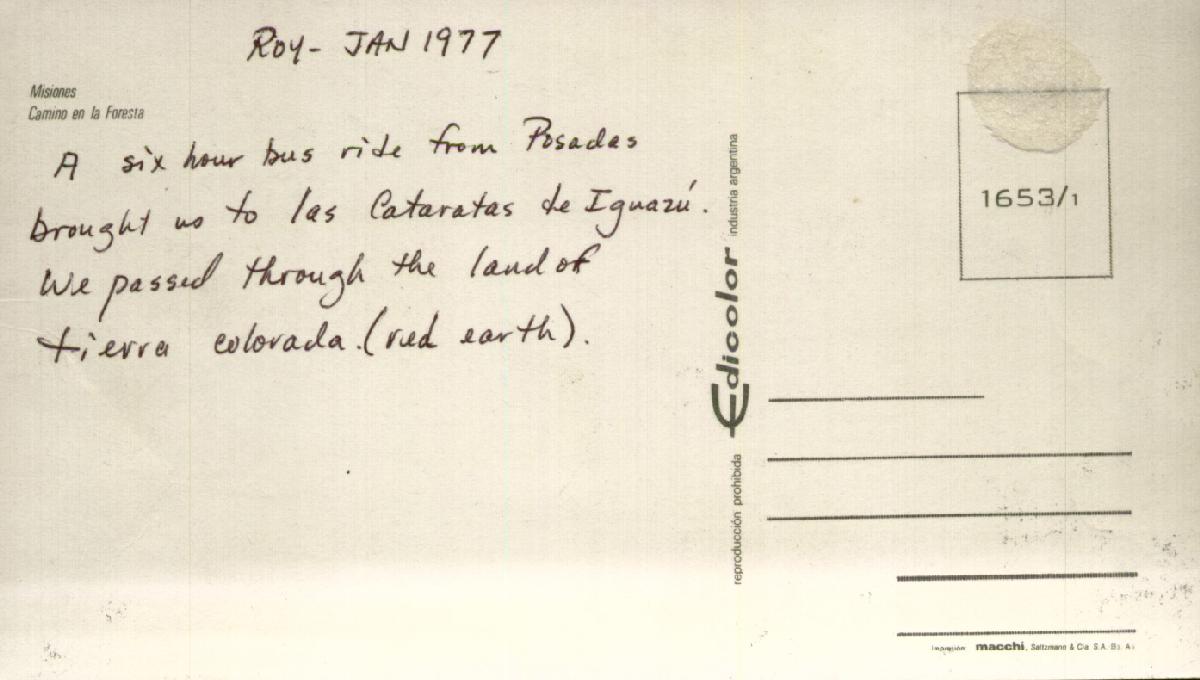 ROY- JAN 1977
Misiones
Camino en la Foresta
A six hour bus ride from Posadas
brought us to las Cataratas de Iguazú.
We passed through the land of
tierra colorada. (red earth).
industria argentina
Edicolor
reproducción prohibida
1653/1
Impresión macchi, Saltzmann & Cia S.A. Bs. As